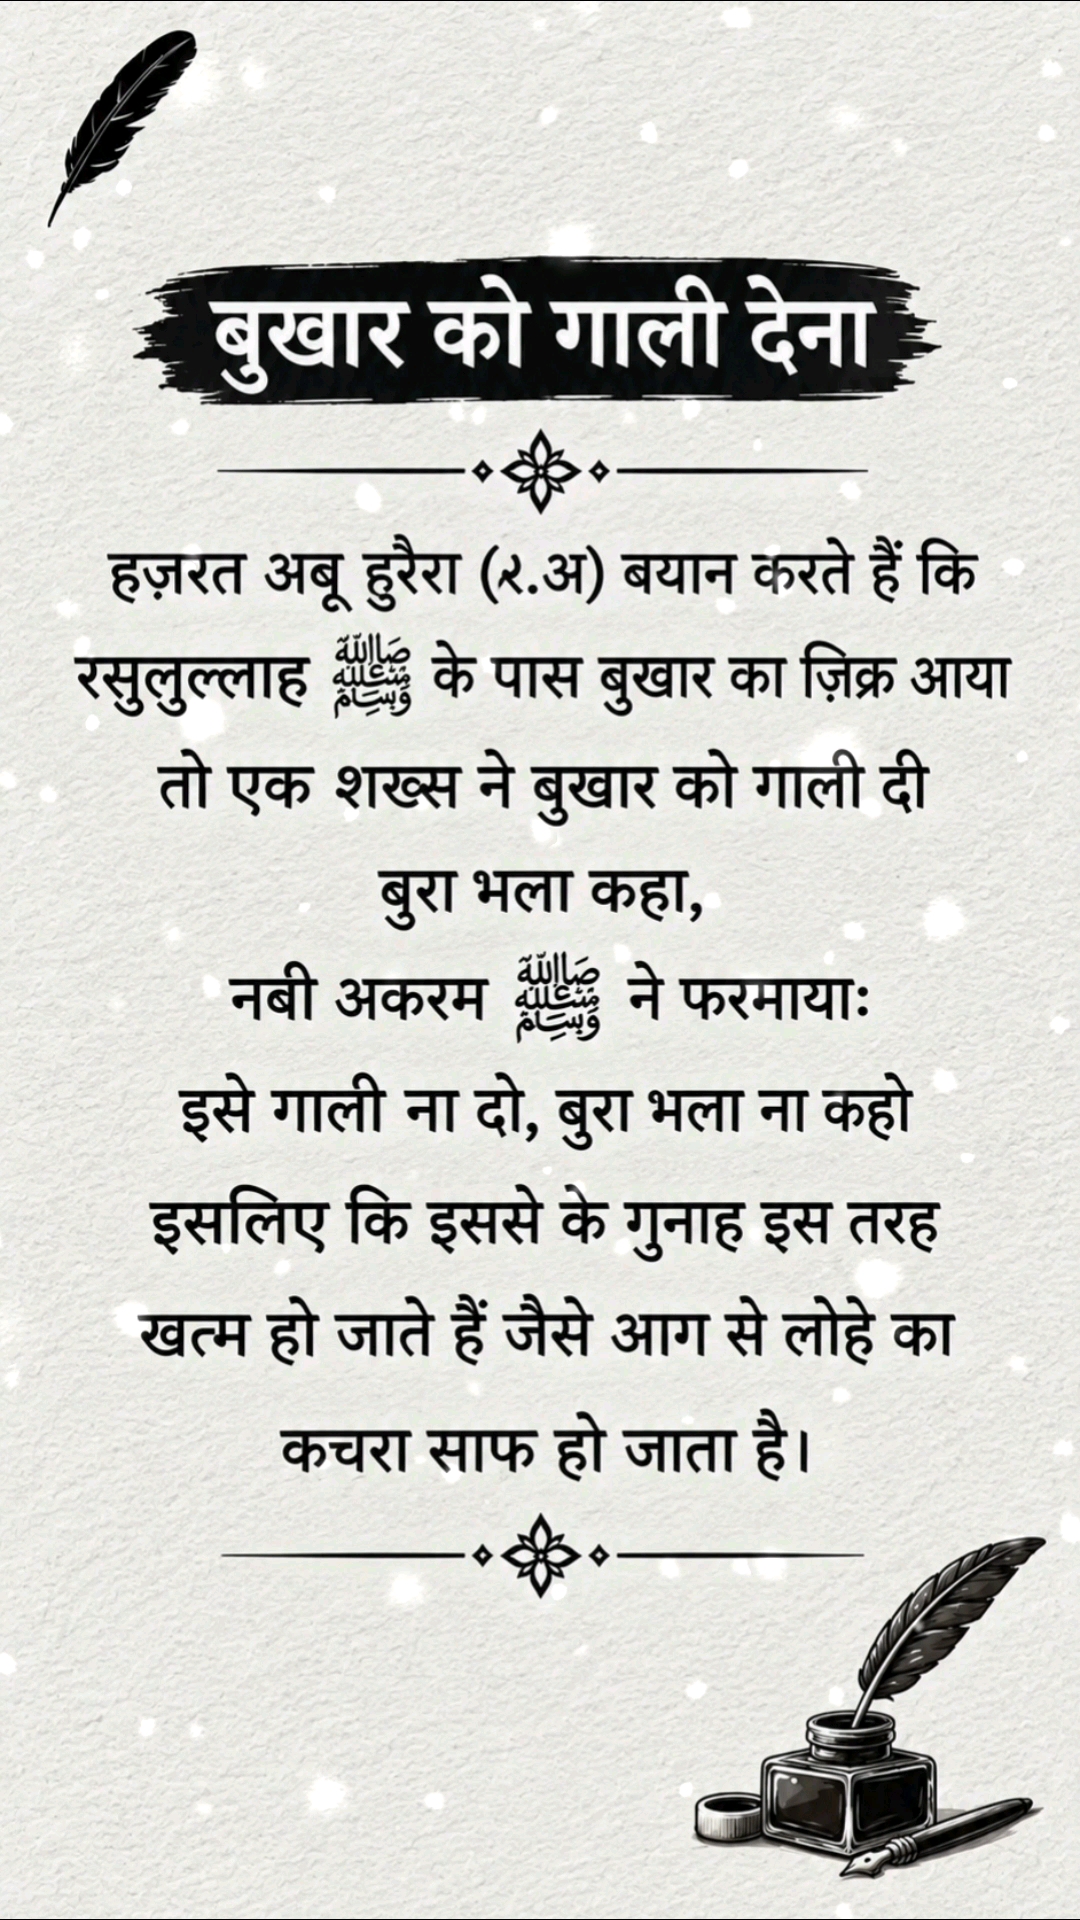 बुखार को गाली देना
हज़रत अबू हुरैरा (र.अ) बयान करते हैं कि
रसुलुल्लाह ﷺ के पास बुखार का ज़िक्र आया
तो एक शख्स ने बुखार को गाली दी
बुरा भला कहा,
नबी अकरम ﷺ ने फरमाया:
इसे गाली ना दो, बुरा भला ना कहो
इसलिए कि इससे के गुनाह इस तरह
खत्म हो जाते हैं जैसे आग से लोहे का
कचरा साफ हो जाता है।